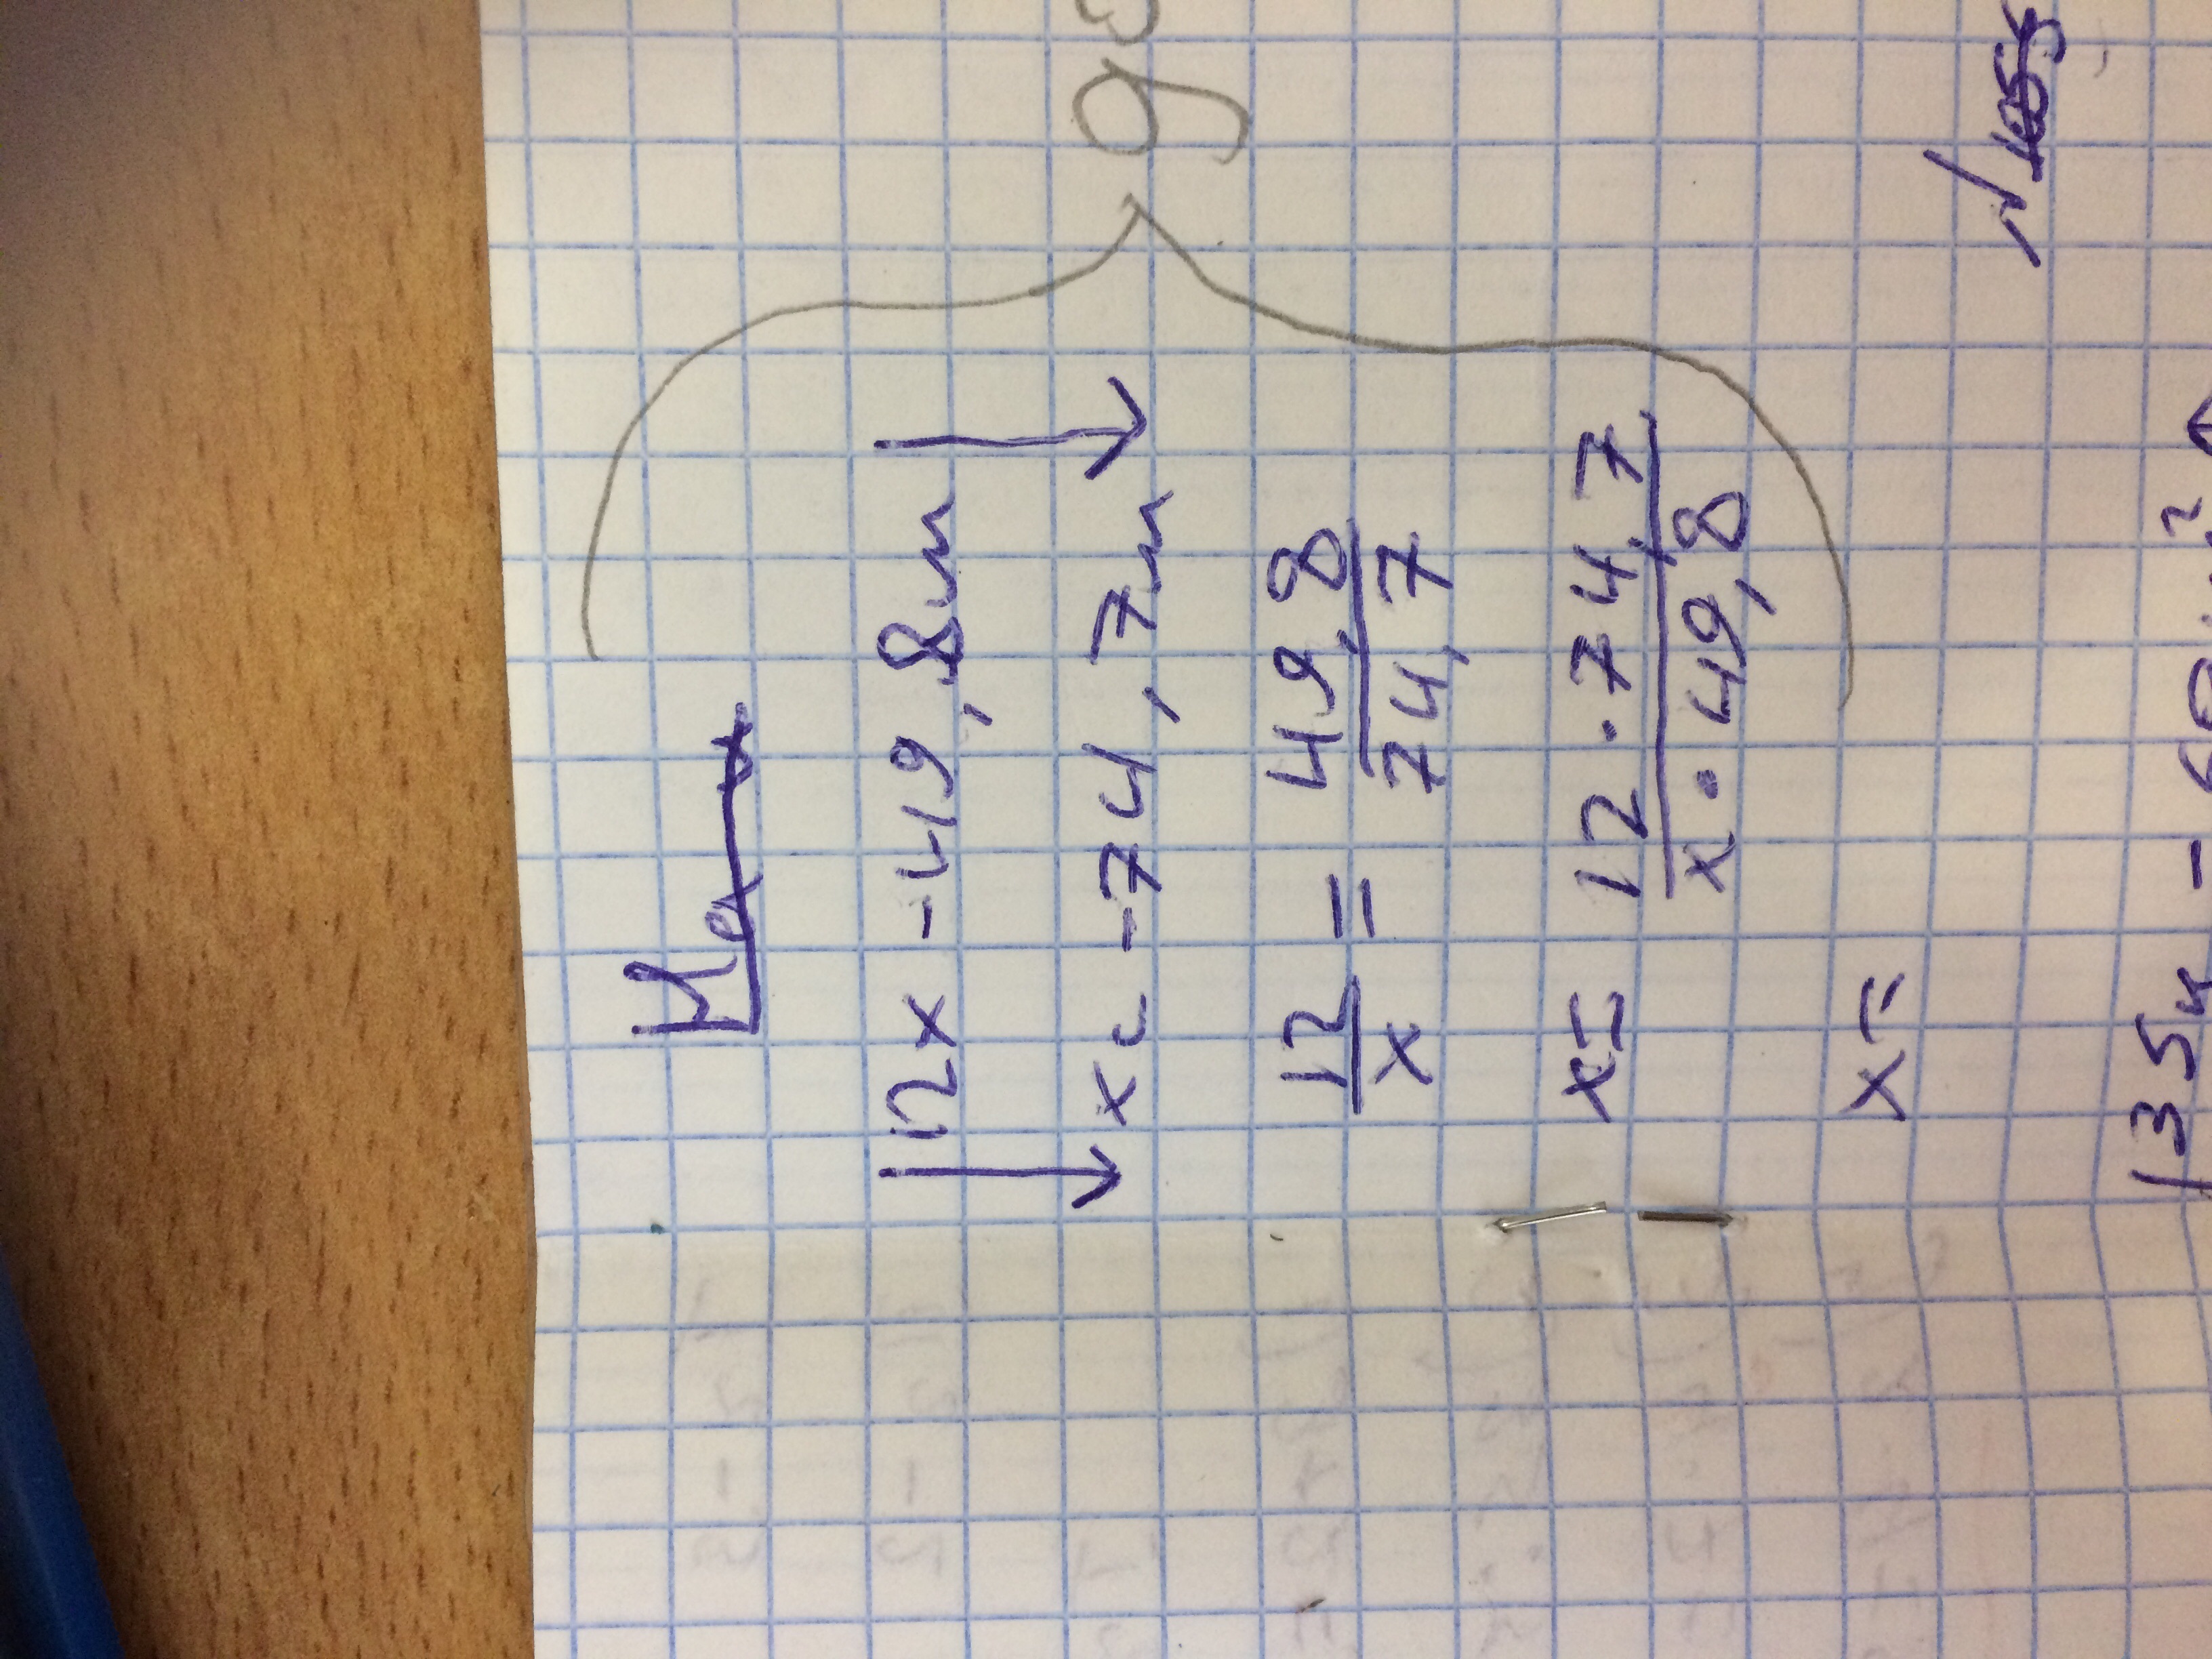 12x - 49,8м
x - 74,7м
12/x = 49,8/74,7
x = 12 · 74,7/x · 49,8
x =
135